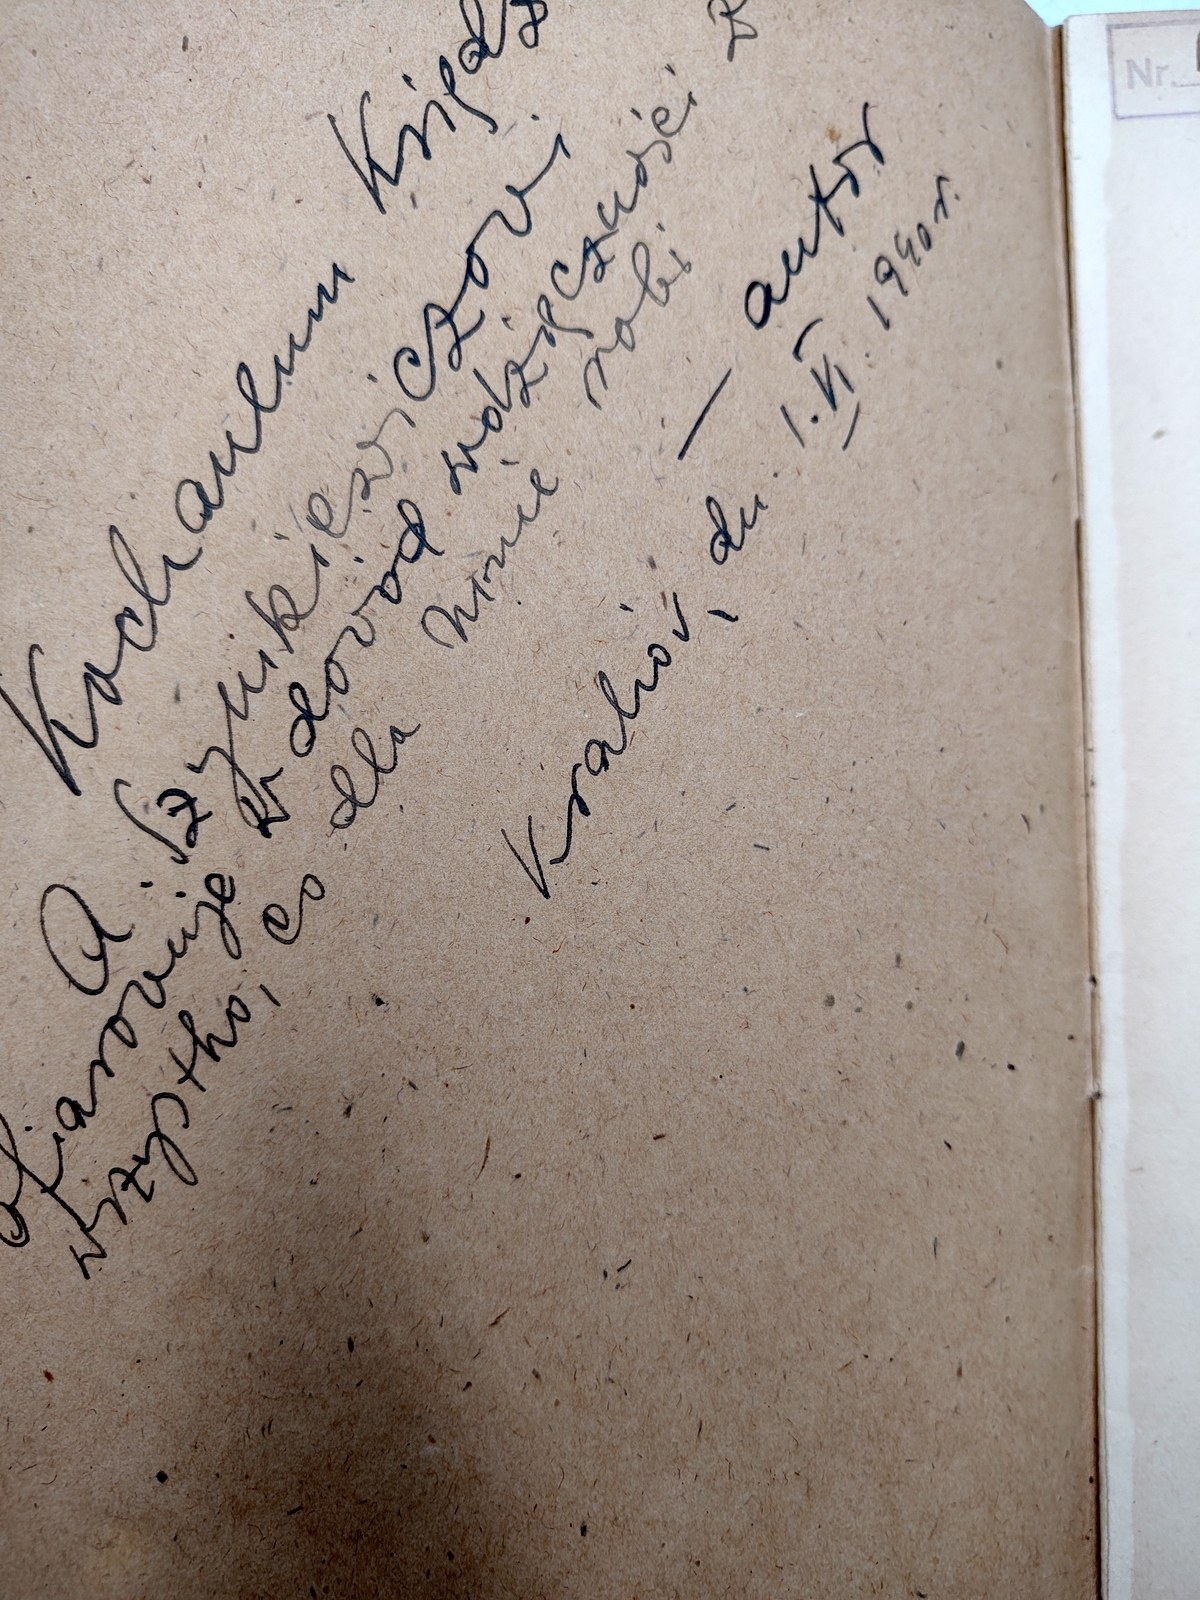 Kochanemu Księdz
A. Szynkiewiczowi
ofiarowuje w dowód wdzięczności z
wszystko, co dla mnie robi
— autor
Kraków, dn. 1.VI. 1940 r.
Nr.